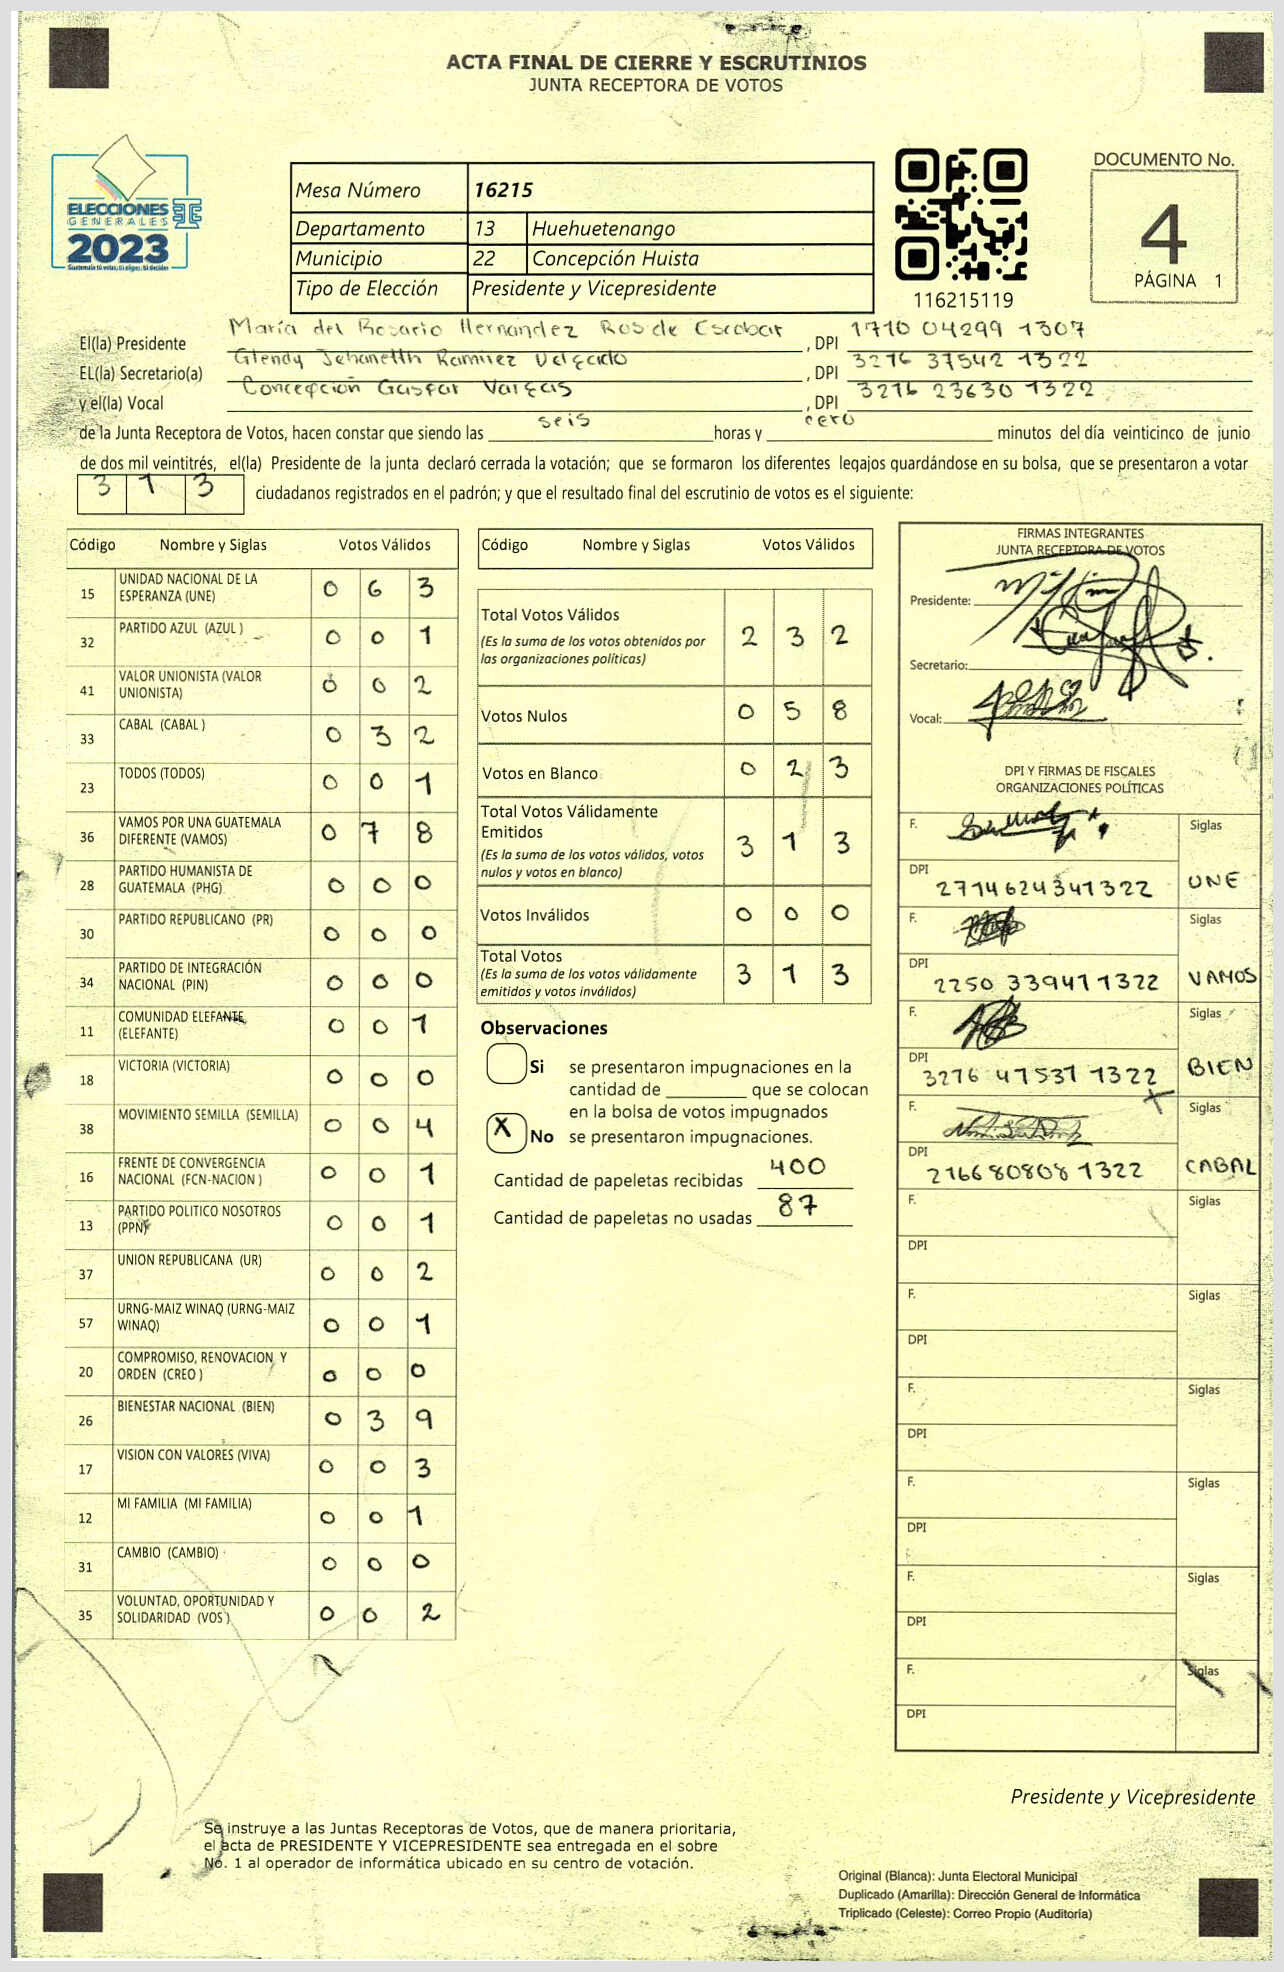 ACTA FINAL DE CIERRE Y ESCRUTINIOS
JUNTA RECEPTORA DE VOTOS
ELECCIONES
GENERALES
2023
Guatemala tú votas, tú eliges, tú decides
Mesa Número 16215
Departamento 13 Huehuetenango
Municipio 22 Concepción Huista
Tipo de Elección Presidente y Vicepresidente
116215119
DOCUMENTO No.
4
PÁGINA 1
El(la) Presidente María del Rosario Hernandez Ros de Escobar , DPI 1710 04299 1307
EL(la) Secretario(a) Glendy Jehanetth Ramírez Delgado , DPI 3276 37542 1322
y el(la) Vocal Concepción Gaspar Vargas , DPI 3276 23630 1322
de la Junta Receptora de Votos, hacen constar que siendo las seis horas y cero minutos del día veinticinco de junio
de dos mil veintitrés, el(la) Presidente de la junta declaró cerrada la votación; que se formaron los diferentes legajos guardándose en su bolsa, que se presentaron a votar
3 1 3 ciudadanos registrados en el padrón; y que el resultado final del escrutinio de votos es el siguiente:
Código Nombre y Siglas Votos Válidos
15 UNIDAD NACIONAL DE LA ESPERANZA (UNE) 0 6 3
32 PARTIDO AZUL (AZUL ) 0 0 1
41 VALOR UNIONISTA (VALOR UNIONISTA) 0 0 2
33 CABAL (CABAL ) 0 3 2
23 TODOS (TODOS) 0 0 1
36 VAMOS POR UNA GUATEMALA DIFERENTE (VAMOS) 0 7 8
28 PARTIDO HUMANISTA DE GUATEMALA (PHG) 0 0 0
30 PARTIDO REPUBLICANO (PR) 0 0 0
34 PARTIDO DE INTEGRACIÓN NACIONAL (PIN) 0 0 0
11 COMUNIDAD ELEFANTE (ELEFANTE) 0 0 1
18 VICTORIA (VICTORIA) 0 0 0
38 MOVIMIENTO SEMILLA (SEMILLA) 0 0 4
16 FRENTE DE CONVERGENCIA NACIONAL (FCN-NACION ) 0 0 1
13 PARTIDO POLITICO NOSOTROS (PPN) 0 0 1
37 UNION REPUBLICANA (UR) 0 0 2
57 URNG-MAIZ WINAQ (URNG-MAIZ WINAQ) 0 0 1
20 COMPROMISO, RENOVACION Y ORDEN (CREO ) 0 0 0
26 BIENESTAR NACIONAL (BIEN) 0 3 9
17 VISION CON VALORES (VIVA) 0 0 3
12 MI FAMILIA (MI FAMILIA) 0 0 1
31 CAMBIO (CAMBIO) 0 0 0
35 VOLUNTAD, OPORTUNIDAD Y SOLIDARIDAD (VOS ) 0 0 2
Código Nombre y Siglas Votos Válidos
Total Votos Válidos 2 3 2
(Es la suma de los votos obtenidos por
las organizaciones políticas)
Votos Nulos 0 5 8
Votos en Blanco 0 2 3
Total Votos Válidamente
Emitidos 3 1 3
(Es la suma de los votos válidos, votos
nulos y votos en blanco)
Votos Inválidos 0 0 0
Total Votos 3 1 3
(Es la suma de los votos válidamente
emitidos y votos inválidos)
Observaciones
Si se presentaron impugnaciones en la
cantidad de ________ que se colocan
en la bolsa de votos impugnados
X No se presentaron impugnaciones.
Cantidad de papeletas recibidas 400
Cantidad de papeletas no usadas 87
FIRMAS INTEGRANTES
JUNTA RECEPTORA DE VOTOS
Presidente:
Secretario:
Vocal:
DPI Y FIRMAS DE FISCALES
ORGANIZACIONES POLÍTICAS
F. Siglas
DPI 2714624341322 UNE
F. Siglas
DPI 2250 339411322 VAMOS
F. Siglas
DPI 3276 47537 1322 BIEN
F. Siglas
DPI 2166808081322 CABAL
F. Siglas
DPI
F. Siglas
DPI
F. Siglas
DPI
F. Siglas
DPI
F. Siglas
DPI
F. Siglas
DPI
Presidente y Vicepresidente
Se instruye a las Juntas Receptoras de Votos, que de manera prioritaria,
el acta de PRESIDENTE Y VICEPRESIDENTE sea entregada en el sobre
No. 1 al operador de informática ubicado en su centro de votación.
Original (Blanca): Junta Electoral Municipal
Duplicado (Amarilla): Dirección General de Informática
Triplicado (Celeste): Correo Propio (Auditoría)